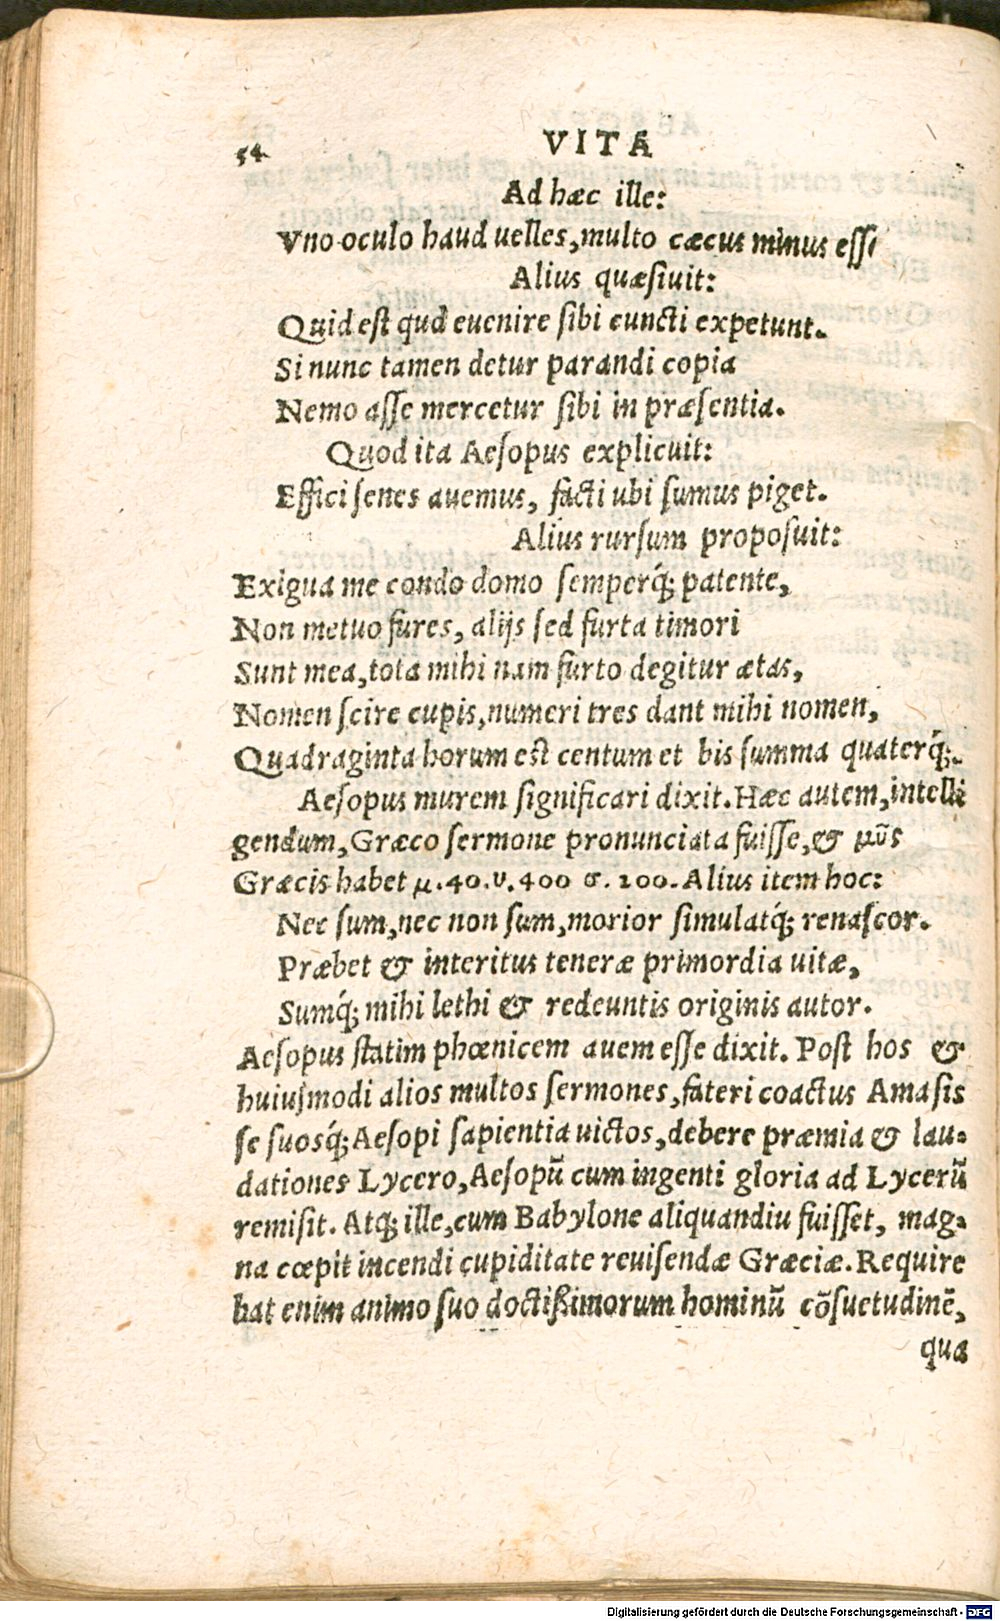 54 VITA
Ad hæc ille:
Vno oculo haud uelles, multo cæcus minus essi
Alius quæsiuit:
Quid est qud euenire sibi cuncti expetunt.
Si nunc tamen detur parandi copia
Nemo asse mercetur sibi in præsentia.
Quod ita Aesopus explicuit:
Effici senes auemus, facti ubi sumus piget.
Alius rursum proposuit:
Exigua me condo domo semperq́; patente,
Non metuo fures, alijs sed furta timori
Sunt mea, tota mihi nam furto degitur ætas,
Nomen scire cupis, numeri tres dant mihi nomen,
Quadraginta horum est centum et bis summa quaterq́;.
Aesopus murem significari dixit. Hæc autem, intelli
gendum, Græco sermone pronunciata fuisse, & μῦς
Græcis habet μ. 40. υ. 400 σ. 200. Alius item hoc:
Nec sum, nec non sum, morior simulatq́; renascor.
Præbet & interitus teneræ primordia uitæ,
Sumq́; mihi lethi & redeuntis originis autor.
Aesopus statim phœnicem auem esse dixit. Post hos &
huiusmodi alios multos sermones, fateri coactus Amasis
se suosq́; Aesopi sapientia uictos, debere præmia & lau-
dationes Lycero, Aesopū cum ingenti gloria ad Lycerū
remisit. Atq́; ille, cum Babylone aliquandiu fuisset, mag-
na cœpit incendi cupiditate reuisendæ Græciæ. Require
bat enim animo suo doctißimorum hominū cōsuetudinē,
qua
Digitalisierung gefördert durch die Deutsche Forschungsgemeinschaft - DFG